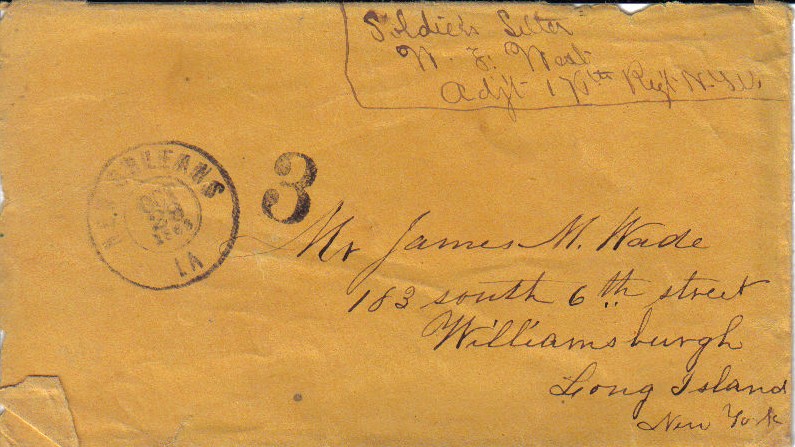 Soldier's Letter
W. F. West
Adjt 17th Regt N.Y.V.
NEW ORLEANS
LA
3
Mr James M. Wade
183 south 6th street
Williamsburgh
Long Island
New York